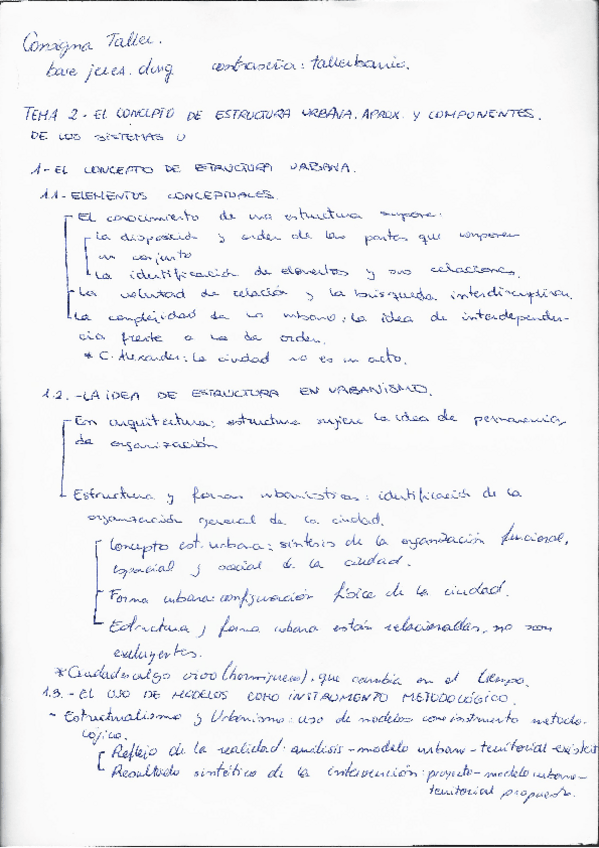 Consigna Taller.
contraseña: tallerbanic.
TEMA 2 - EL CONCEPTO DE ESTRUCTURA URBANA. APROX. Y COMPONENTES.
DE LOS SISTEMAS U
1 - EL CONCEPTO DE ESTRUCTURA URBANA.
1.1 - ELEMENTOS CONCEPTUALES.
El conocimiento de una estructura supone:
La disposición y orden de las partes que componen
un conjunto
La identificación de elementos y sus relaciones.
La voluntad de relación y la búsqueda interdisciplinar.
La complejidad de lo urbano: la idea de interdependen-
cia frente a la de orden.
* C. Alexander: la ciudad no es un acto.
1.2. - LA IDEA DE ESTRUCTURA EN URBANISMO.
En arquitectura: estructura sugiere la idea de permanencia,
de organización
Estructura y formas urbanísticas: identificación de la
organización general de la ciudad.
Concepto est. urbana: síntesis de la organización funcional,
espacial y social de la ciudad.
Forma urbana: configuración física de la ciudad.
Estructura y forma urbana están relacionadas, no son
excluyentes.
* Ciudades algo vivo (hormiguero), que cambia en el tiempo.
1.3. - EL USO DE MODELOS COMO INSTRUMENTO METODOLÓGICO.
- Estructuralismo y Urbanismo: uso de modelos como instrumento metodo-
lógico.
Reflejo de la realidad: análisis - modelo urbano - territorial existe
Resultado sintético de la intervención: proyecto - modelo urbano -
territorial propuesto.